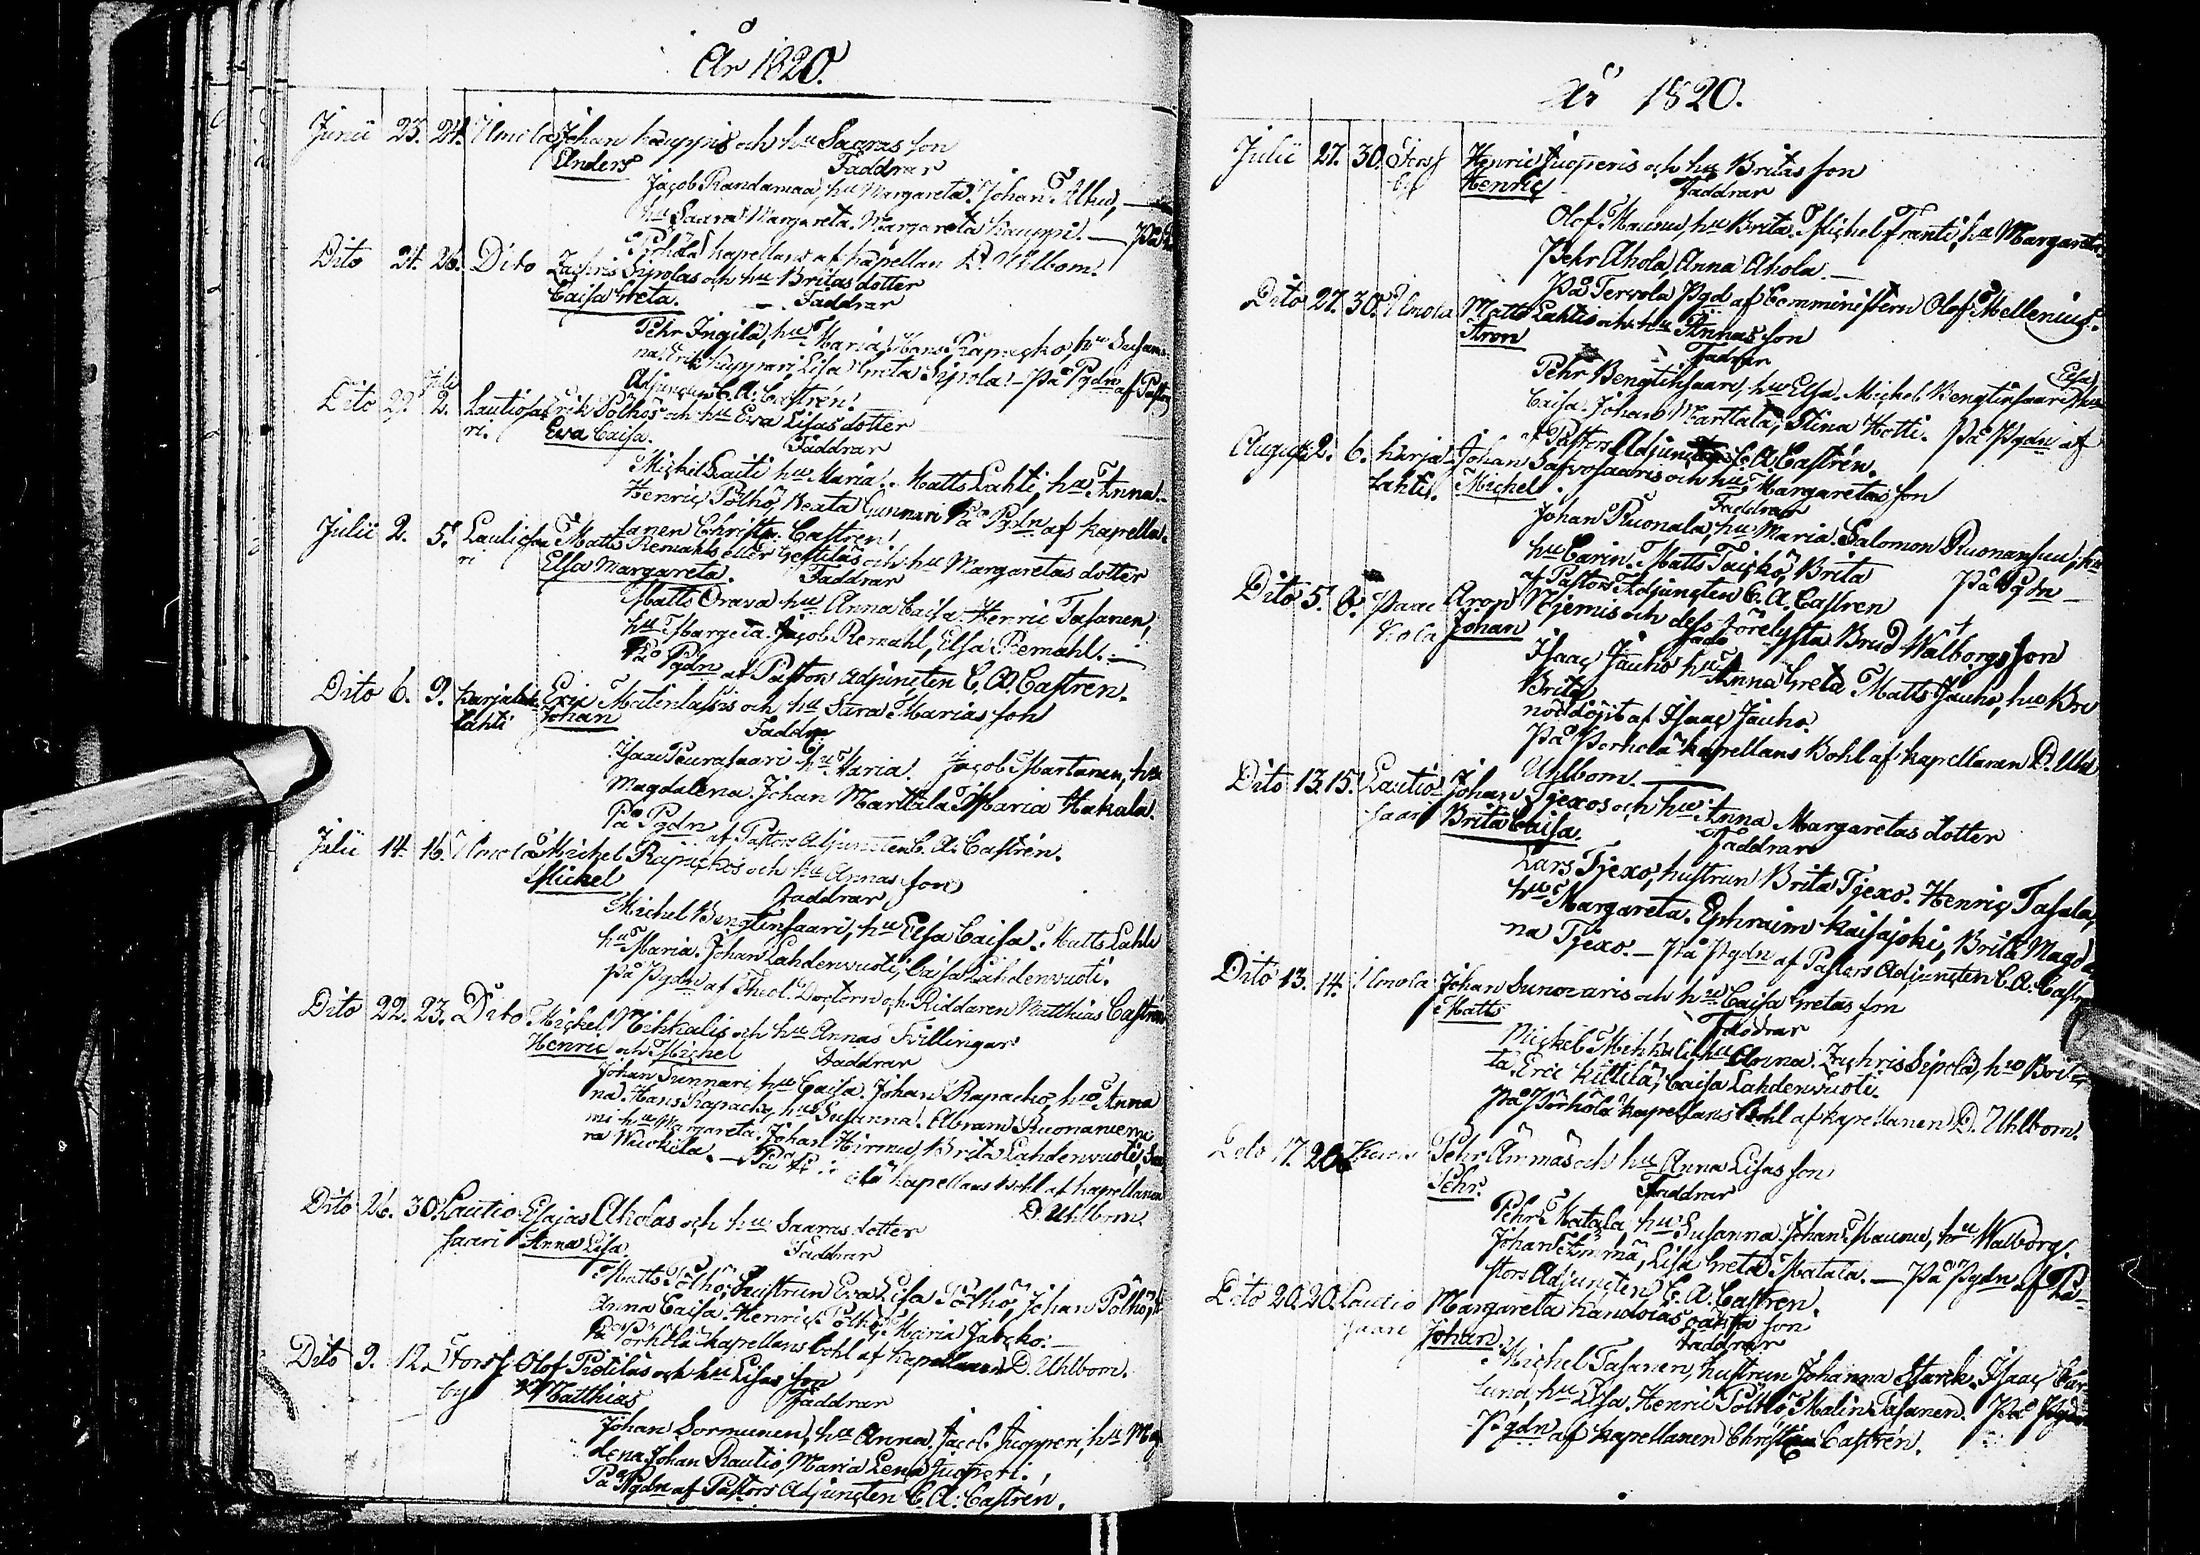 År 1820.
Junii 23. 24. Ilmola Johan Kauppis och hu Saaras son
Anders Faddrar
Jacob Randamaa, hu Margareta. Johan Alhu,
hu Saara Margareta. Margareta Kauppi. — På
Pörhölä kapellans af kapellan D. Uhlbom.
Dito 24. 26. Dito Zachris Sipolas och hu Britas dotter
Caisa Greta. Faddrar
Pehr Ingilä, hu Maria, Hans Rapacko, hu Susan-
na, Erik Kuppari Lisa Greta Sipola. – På Pgdn af Past
Adjuncten C. A. Castrén.
Dito 29. Julii 2. Lautiosa- Erik Pölhös och hu Eva Lisas dotter
ri. Eva Caisa. Faddrar
Michel Laiti hu Maria. Matts Lahti, hu Anna.
Henric Pölhö, Beata Gunnari På Pgdn af kapella-
lanen Christ. Castren.
Julii 2. 5. Lautiosa Matts Remahls eller Yestiläs och hu Margaretas dotter
ri Elsa Margareta. Faddrar
Matts Orava hu Anna Caisa. Henric Tasanen,
hu Margeta. Jacob Remahl, Elsa Remahl. —
På Pgdn af Pastors Adjuncten C. A. Castren.
Dito 6. 9. Karjala- Eric Matinlassis och hu Sara Marias son
lahti Johan Faddrar
Isaac Paurasaari hu Maria. Jacob Martanen, hu
Magdalena. Johan Marttala Maria Hakala.
På Pgdn af Pastors Adjuncten C. A. Castrén.
Julii 14. 16. Ilmola Michel Rapackos och hu Annas son
Mickel Faddrar
Michel Bengtinsaari, hu Elsa Caisa. Matts Lahti
hu Maria. Johan Lahdenvuoti, Caisa Lahdenvuoti.
på Pgdn af Theol. Doctorn och Riddaren Matthias Castrén
Dito 22. 23. Dito Michel Mihkalis och hu Annas Tvillingar
Henric och Michel Faddrar
Johan Sunnari, hu Caisa. Johan Rapacko, hu Anna
na. Hans Rapacko, hu Susanna. Abram Ruonaniemi
mi hu Margareta. Johan Hirmu, Brita Lahdenvuoti, Sa
ra Wuokila. — På kapellans bohl af kapellanen
D. Uhlbom.
Dito 26. 30. Lautio Esajas Aholas och hu Saaras dotter
saari Anna Lisa. Faddrar
Matts Pölhö, hustrun Eva Lisa Pölhö, Johan Pölhö, h
Anna Caisa. Henric Pölhö, Maria Jatcko. —
På Pörhölä kapellans bohl af kapellanen D. Uhlbom.
Dito 9. 12. Fors Olof Pietiläs och hu Lisas son
by Matthias Faddrar
Johan Sormunen, hu Anna. Jacob Juopperi, hu Mag
dena Johan Rautio, Maria Lena Juopperi.
På Pgdn af Pastors Adjuncten C. A. Castrén.
År 1820.
Julii 27. 30. Fors Henric Juoperis och hu Britas son
by Henric Faddrar
Olof Maunu, hu Brita. Michel Franti, hu Margareta
Pehr Ahola, Anna Ahola. —
På Tervola Pgd af Comministern Olof Mellenius.
Dito 27. 30. Ilmola Matts Lahtis och hu Annas son
Aron Fadrar
Pehr Bengtinsaari, hu Elsa. Michel Bengtinsaari, hu Elsa
Caisa. Johan Marttala, Stina Hotti. På Pgdn af
Pastors Adjuncten C. A. Castrén.
August 2. 6. Karja- Johan Satvosaaris och hu Margaretas son
lahti. Michel. Faddrar
Johan Ruonala, hu Maria. Salomon Ruonansuu, hu
hu Carin. Matts Taicko, Brita På Pgdn
af Pastors Adjuncten C. A. Castren
Dito 5. 6. Paac Aron Niemis och dess förelysta Brud Walborgs son
kola Johan Fadd
Isaac Jauho hu Anna Greta Matts Jauho, hu Bri
Brita
nöddöpt af Isaac Jauho.
På Pörhölä kapellans Bohl af kapellanen D. Uhl
Uhlbom.
Dito 13. 15. Lautio- Johan Tjexos och hu Anna Margaretas dotter
saari Brita Caisa. Faddrar
Lars Tjexo, hustrun Brita Tjexo. Henric Tasala,
hu Margareta. Ephraim Kaisajoki, Brita Magda
na Tjexo. — På Pgdn af Pastors Adjuncten C. A. Castr
Dito 13. 14. Ilmola Johan Sunnaris och hu Caisa Gretas son
Matts Faddrar
Mickel Mihkali, hu Anna. Zachris Sipola, hu Bri
ta, Eric Kittilä, Caisa Lahdenvuoti.
På Pörhölä kapellans Bohl af kapellanen D. Uhlbom.
Dito 17. 20. Pehr Ämmäs och hu Anna Lisas son
Pehr. Faddrar
Pehr Matala hu Susanna. Johan Maunu, hu Walborg.
Johan Ämmä, Lisa Greta Matala. — På Pgdn af Pa-
stors Adjuncten C. A. Castren.
Dito 20. 20. Lautio Margareta Kandoias oäkta son
saari Johan. Faddrar
Michel Tasanen, hustrun Johanna Starck. Isaac Car-
lund, hu Elsa. Henric Pölhö, Malin Tasanen. På Pgdn
Pgdn af kapellanen Christian Castrén.